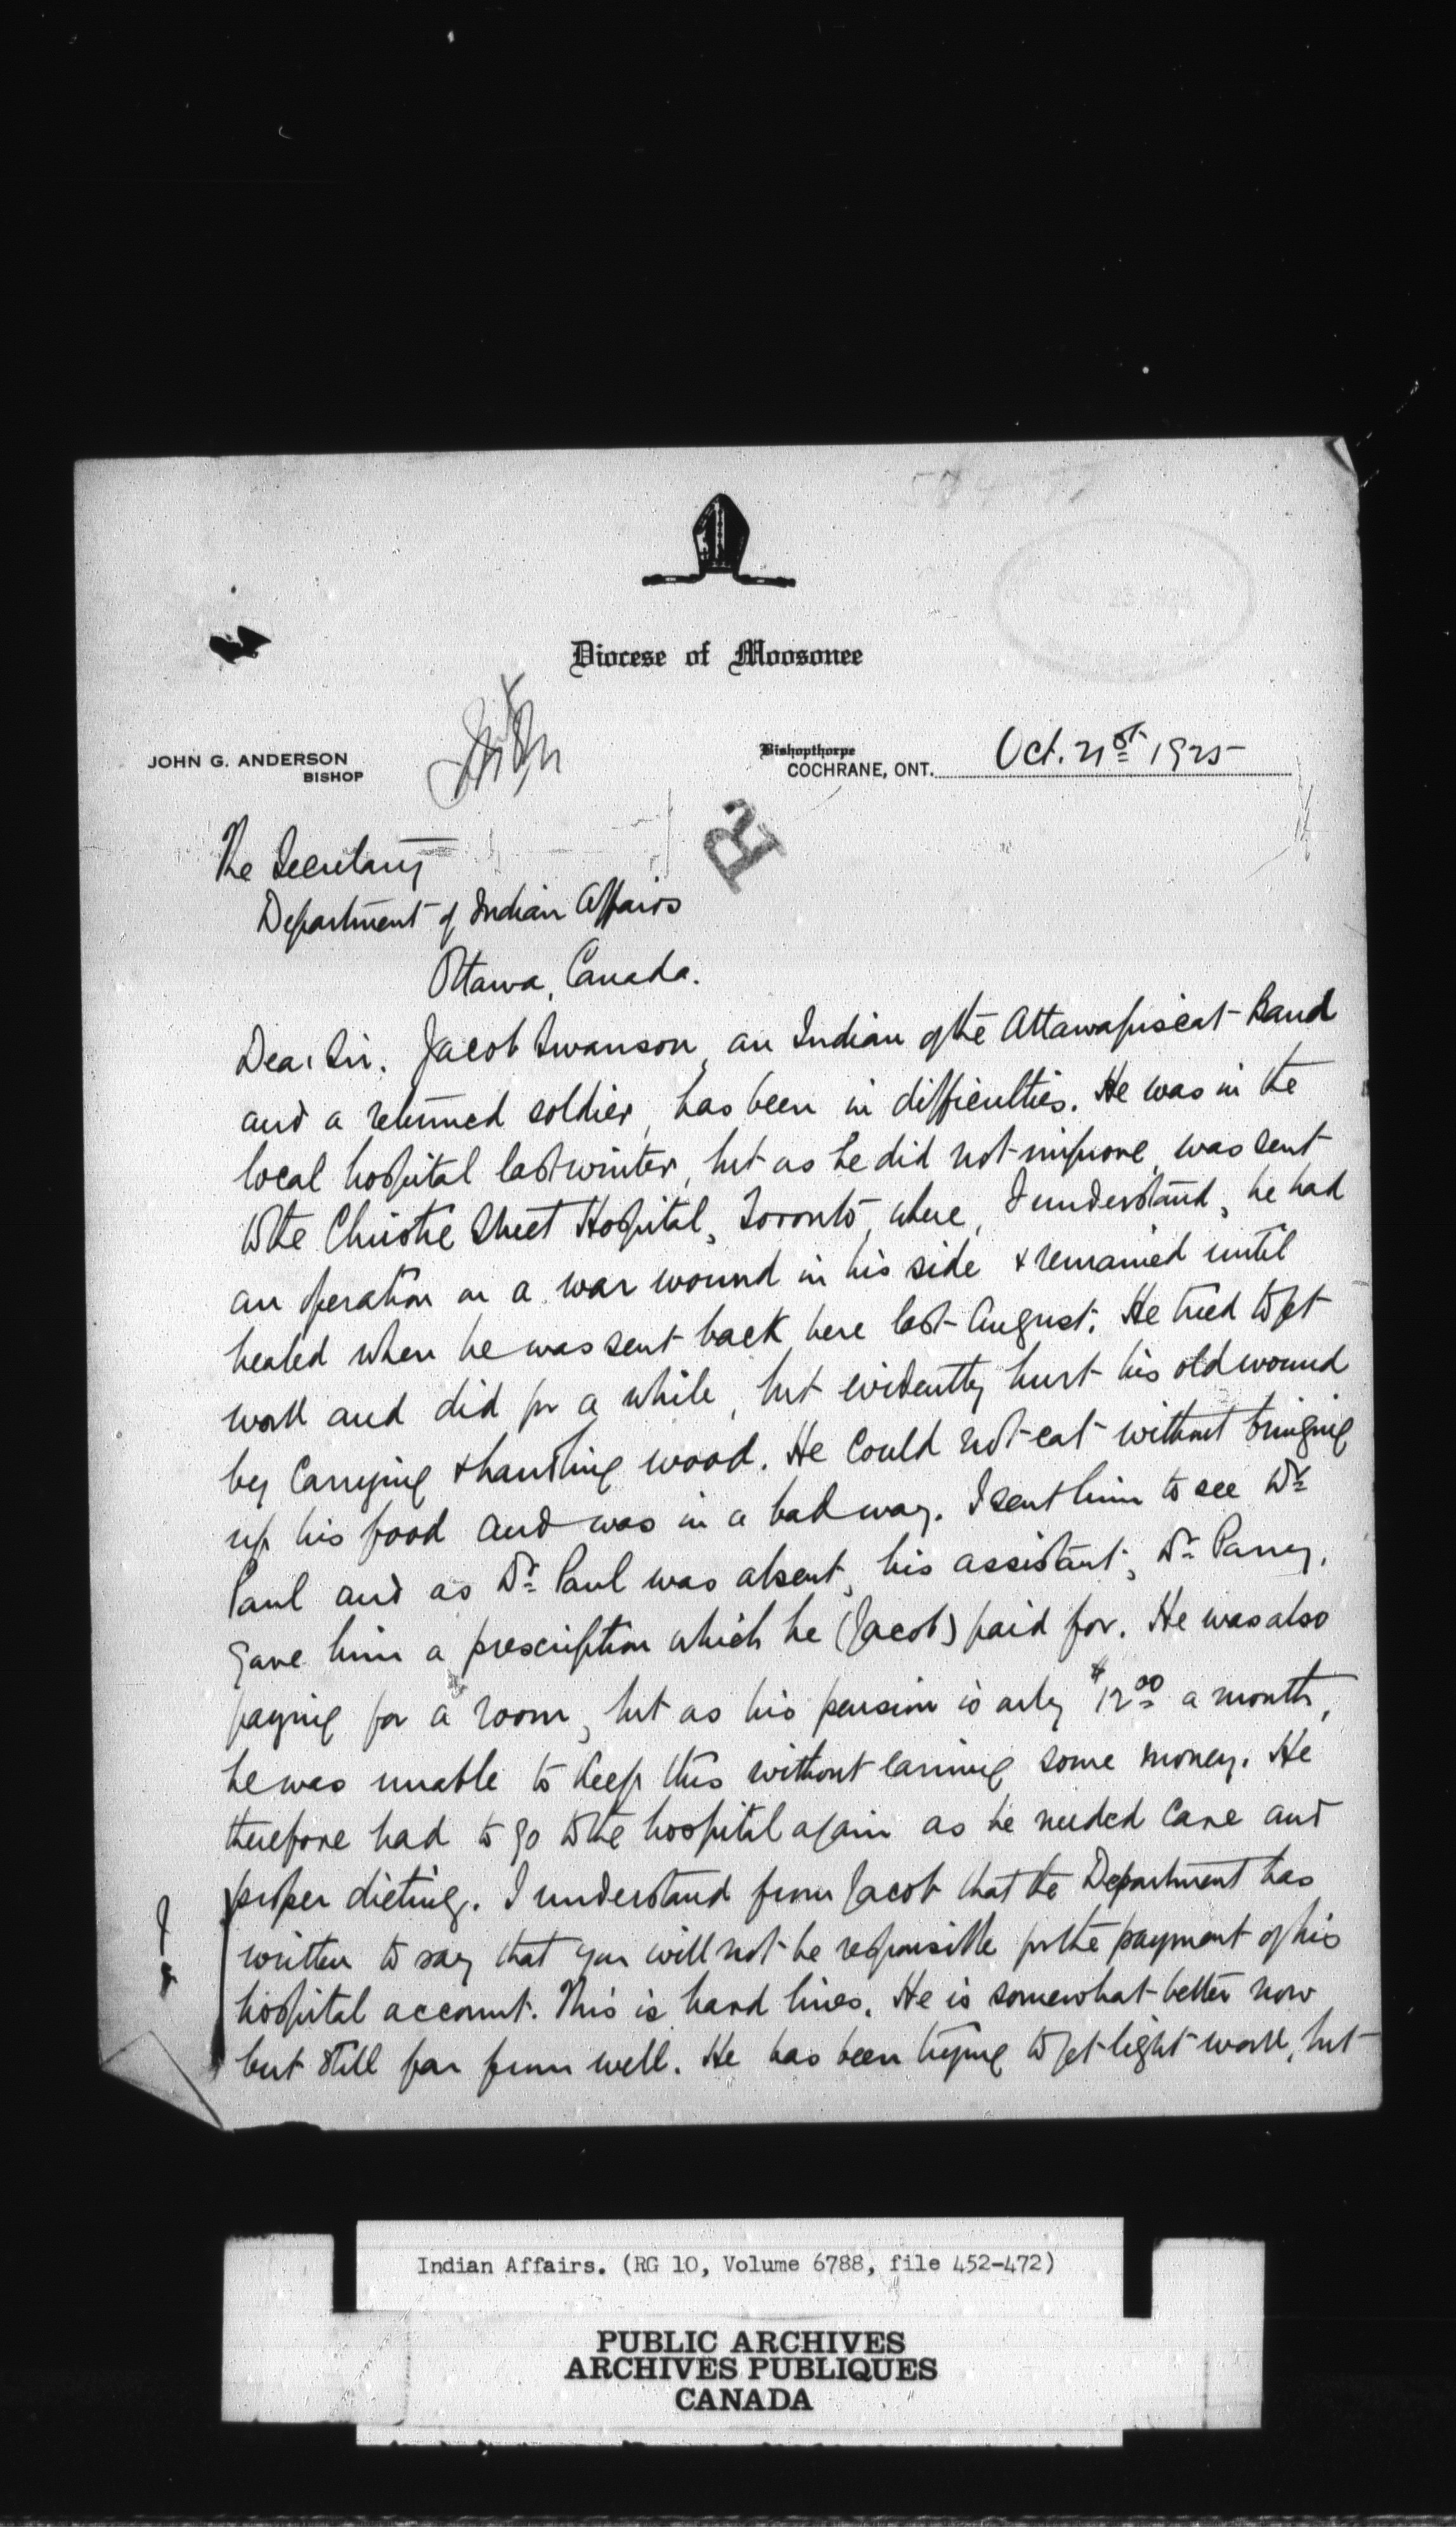 Diocese of Moosonee
JOHN G. ANDERSON
BISHOP
Bishopthorpe
COCHRANE, ONT. Oct. 21st 1925
R
The Secretary
Department of Indian Affairs
Ottawa, Canada.
Dear Sir. Jacob Swanson, an Indian of the Attawapiscat Band
and a returned soldier, has been in difficulties. He was in the
local hospital last winter, but as he did not improve, was sent
to the Christie Street Hospital, Toronto, where, I understand, he had
an operation on a war wound in his side & remained until
healed when he was sent back here last August. He tried to get
work and did for a while, but evidently hurt his old wound
by carrying & handling wood. He could not eat without bringing
up his food and was in a bad way. I sent him to see Dr
Paul and as Dr Paul was absent, his assistant, Dr Parry,
gave him a prescription which he (Jacob) paid for. He was also
paying for a room, but as his pension is only $12.00 a month,
he was unable to keep this without earning some money. He
therefore had to go to the hospital again as he needed care and
proper dieting. I understand from Jacob that the Department has
written to say that you will not be responsible for the payment of his
hospital account. This is hard lines. He is somewhat better now
but still far from well. He has been trying to get light work, but
Indian Affairs. (RG 10, Volume 6788, file 452-472)
PUBLIC ARCHIVES
ARCHIVES PUBLIQUES
CANADA